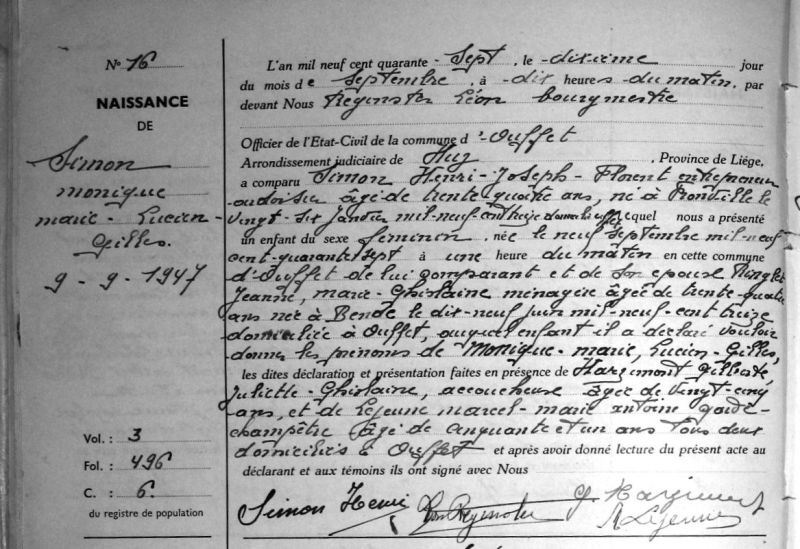 N° 16
NAISSANCE
DE
Simon
monique
marie - Lucien -
Gilles.
9 - 9 - 1947
Vol. : 3
Fol. : 496
C. : 6.
du registre de population
L'an mil neuf cent quarante - Sept , le - dixième jour
du mois de Septembre , à - dix heures - du matin, par
devant Nous Reginster Léon bourgmestre
Officier de l'Etat-Civil de la commune d'Ouffet
Arrondissement judiciaire de Huy , Province de Liége,
a comparu Simon Henri - Joseph - Florent entrepreneur
âgé de trente quatre ans, né à le
vingt - six janvier mil - neuf - cent treize domicilié lequel nous a présenté
un enfant du sexe féminin , née le neuf septembre mil - neuf
cent - quarante sept à une heure du matin en cette commune
d'Ouffet de lui comparant et de son épouse Ringlet
Jeanne, marie - Ghislaine ménagère âgée de trente - quatre
ans née à Bende le dix - neuf juin mil - neuf - cent treize
domiciliée à Ouffet, auquel enfant il a déclaré vouloir
donner les prénoms de Monique - marie, Lucien - Gilles,
les dites déclaration et présentation faites en présence de Hargimont
Juliette - Ghislaine, accoucheuse âgée de vingt - cinq
ans, et de Lejeune marcel - marie antoine garde -
champêtre âgé de cinquante et un ans tous deux
domiciliés à Ouffet et après avoir donné lecture du présent acte au
déclarant et aux témoins ils ont signé avec Nous
Simon Henri Léon Reginster J. Hargimont
M Lejeune